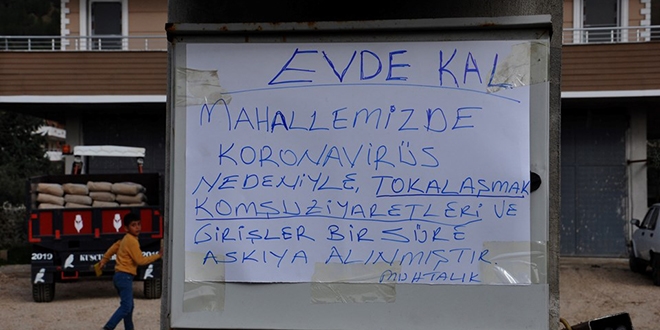 EVDE KAL
MAHALLEMİZDE
KORONAVİRÜS
NEDENİYLE, TOKALAŞMAK
KOMŞUZİYARETLERİ VE
GİRİŞLER BİR SÜRE
ASKIYA ALINMIŞTIR.
MUHTALIK
2019